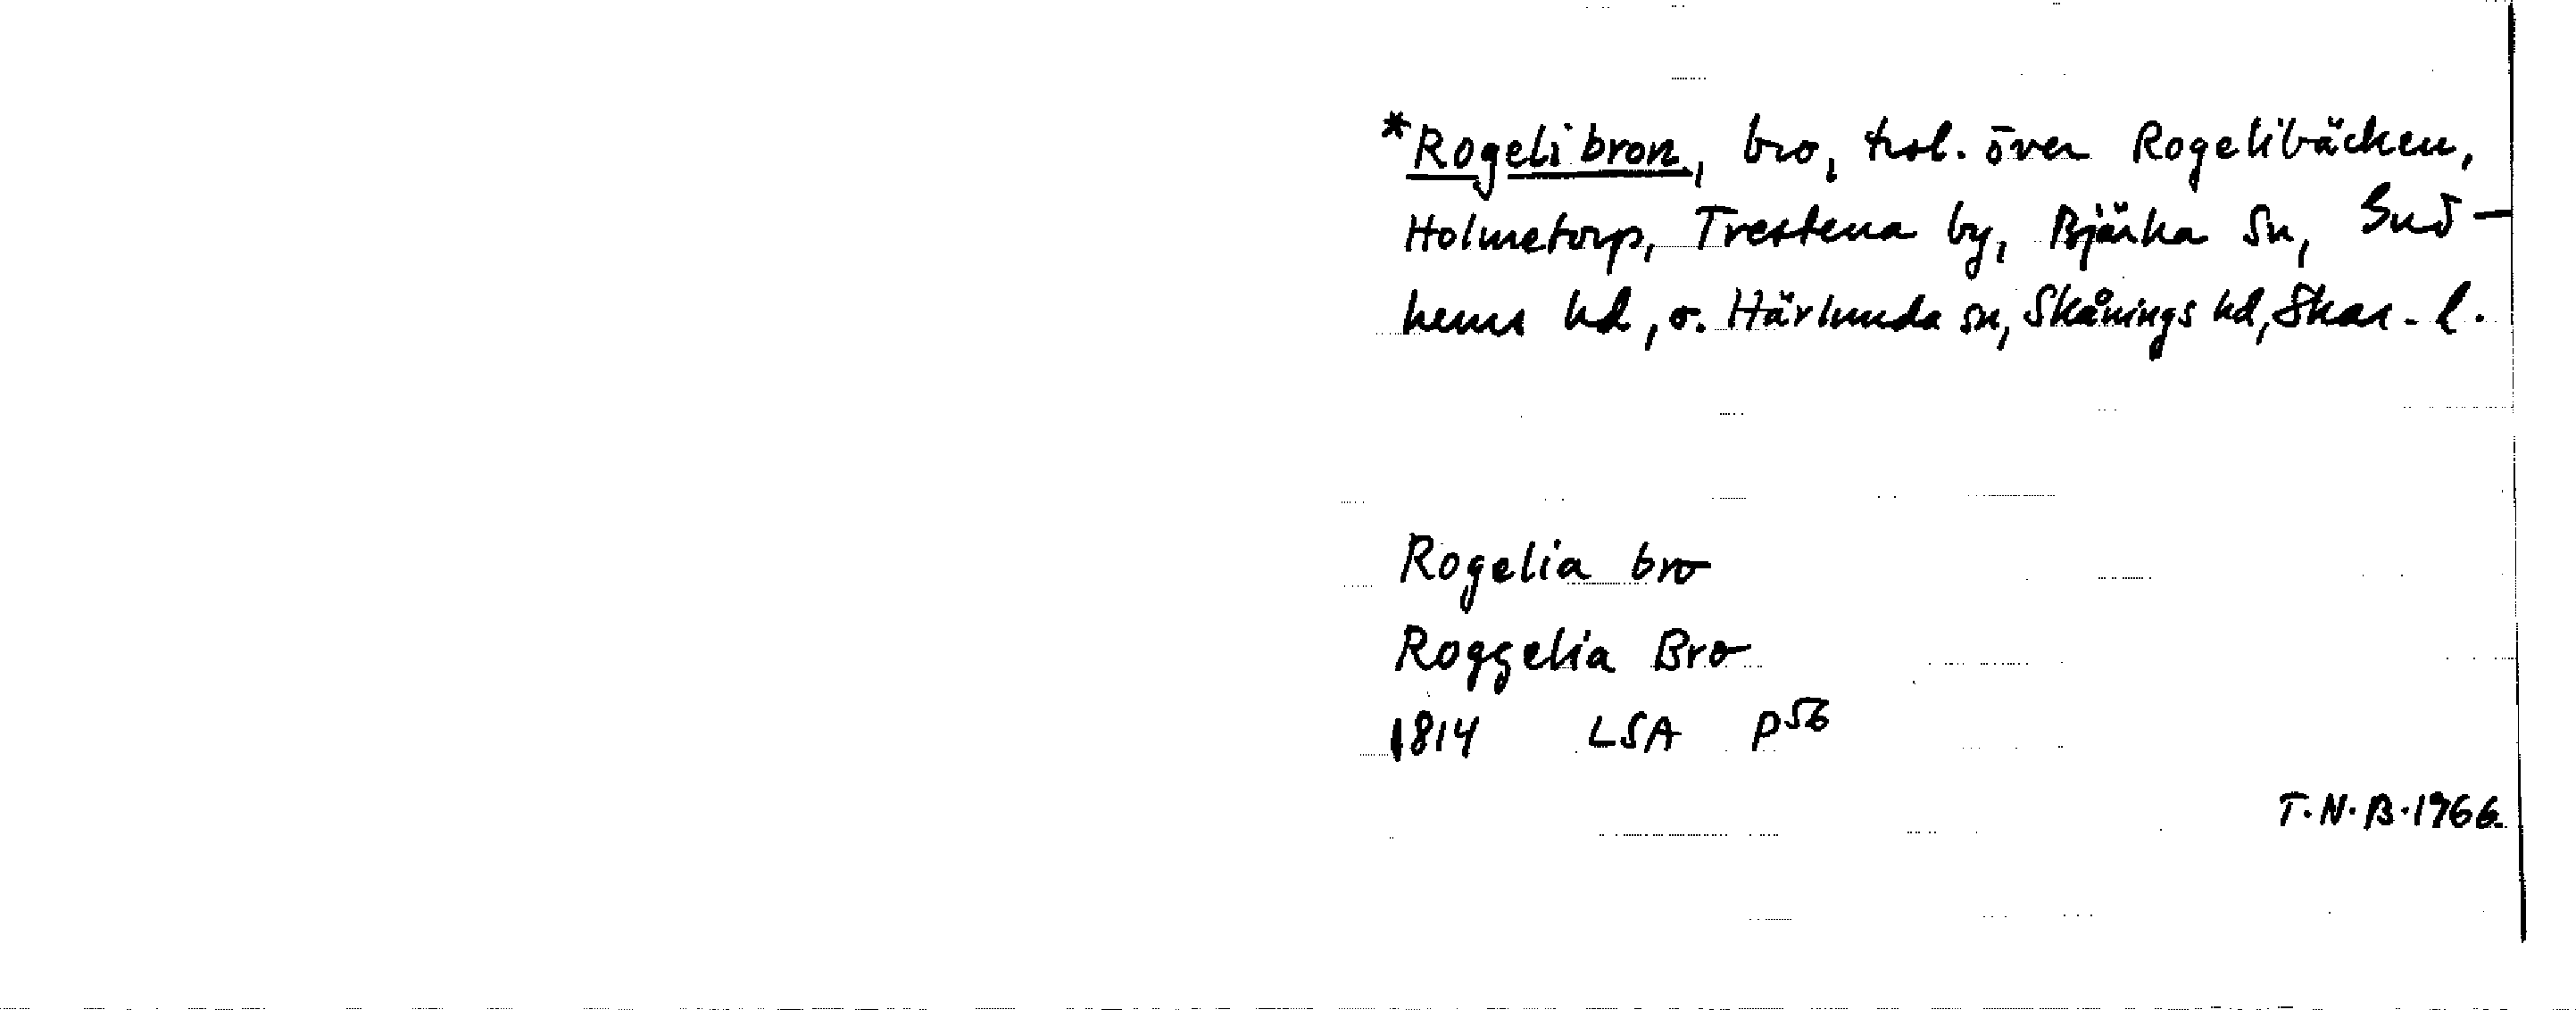 *Rogelibron, bro, trol. över Rogelibäcken,
Holmetorp, Trestena by, Bjärka sn, Gud-
hems hd, o. Härlunda sn, Skånings hd, Skar. l.
Rogelia bro
Roggelia Bro
1814 LSA P56
T.N.B. 1966